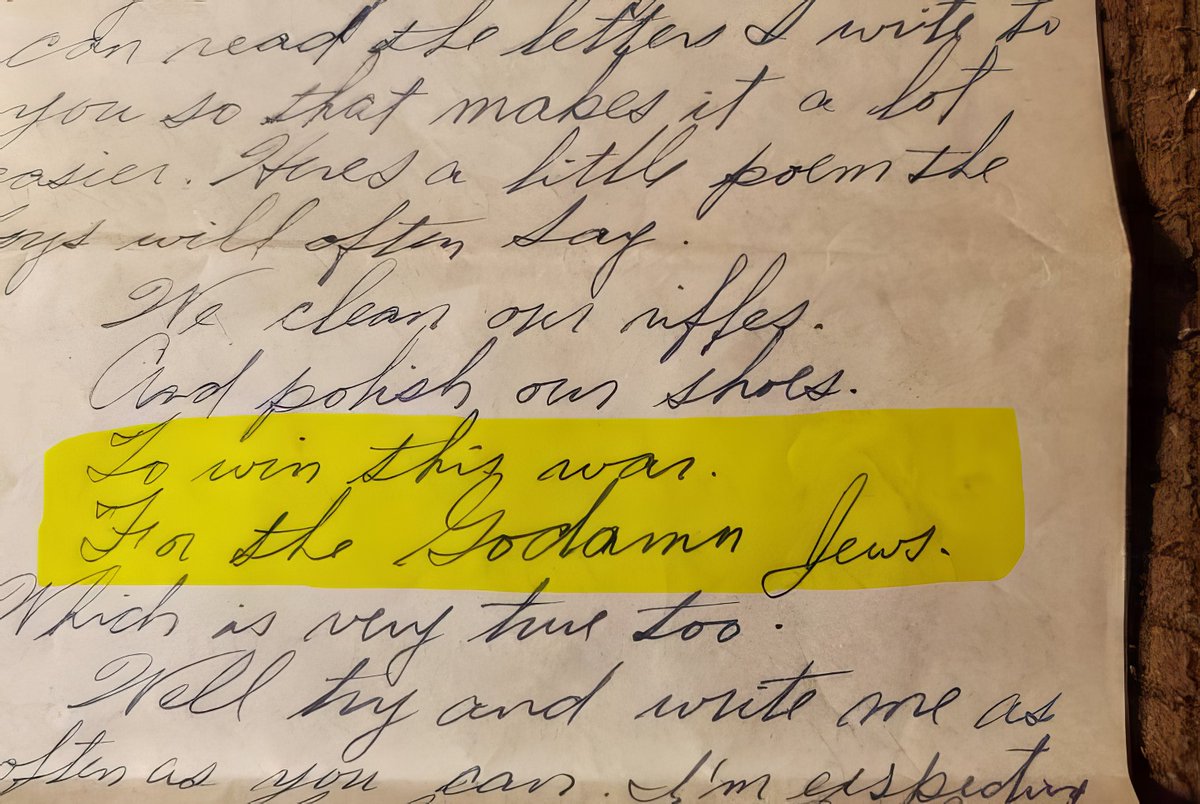 can read the letters I write to
you so that makes it a lot
easier. Heres a little poem the
boys will often say.
We clean our riffles.
And polish our shoes.
To win this war.
For the Godamn Jews.
Which is very true too.
Well try and write me as
often as you can. I'm